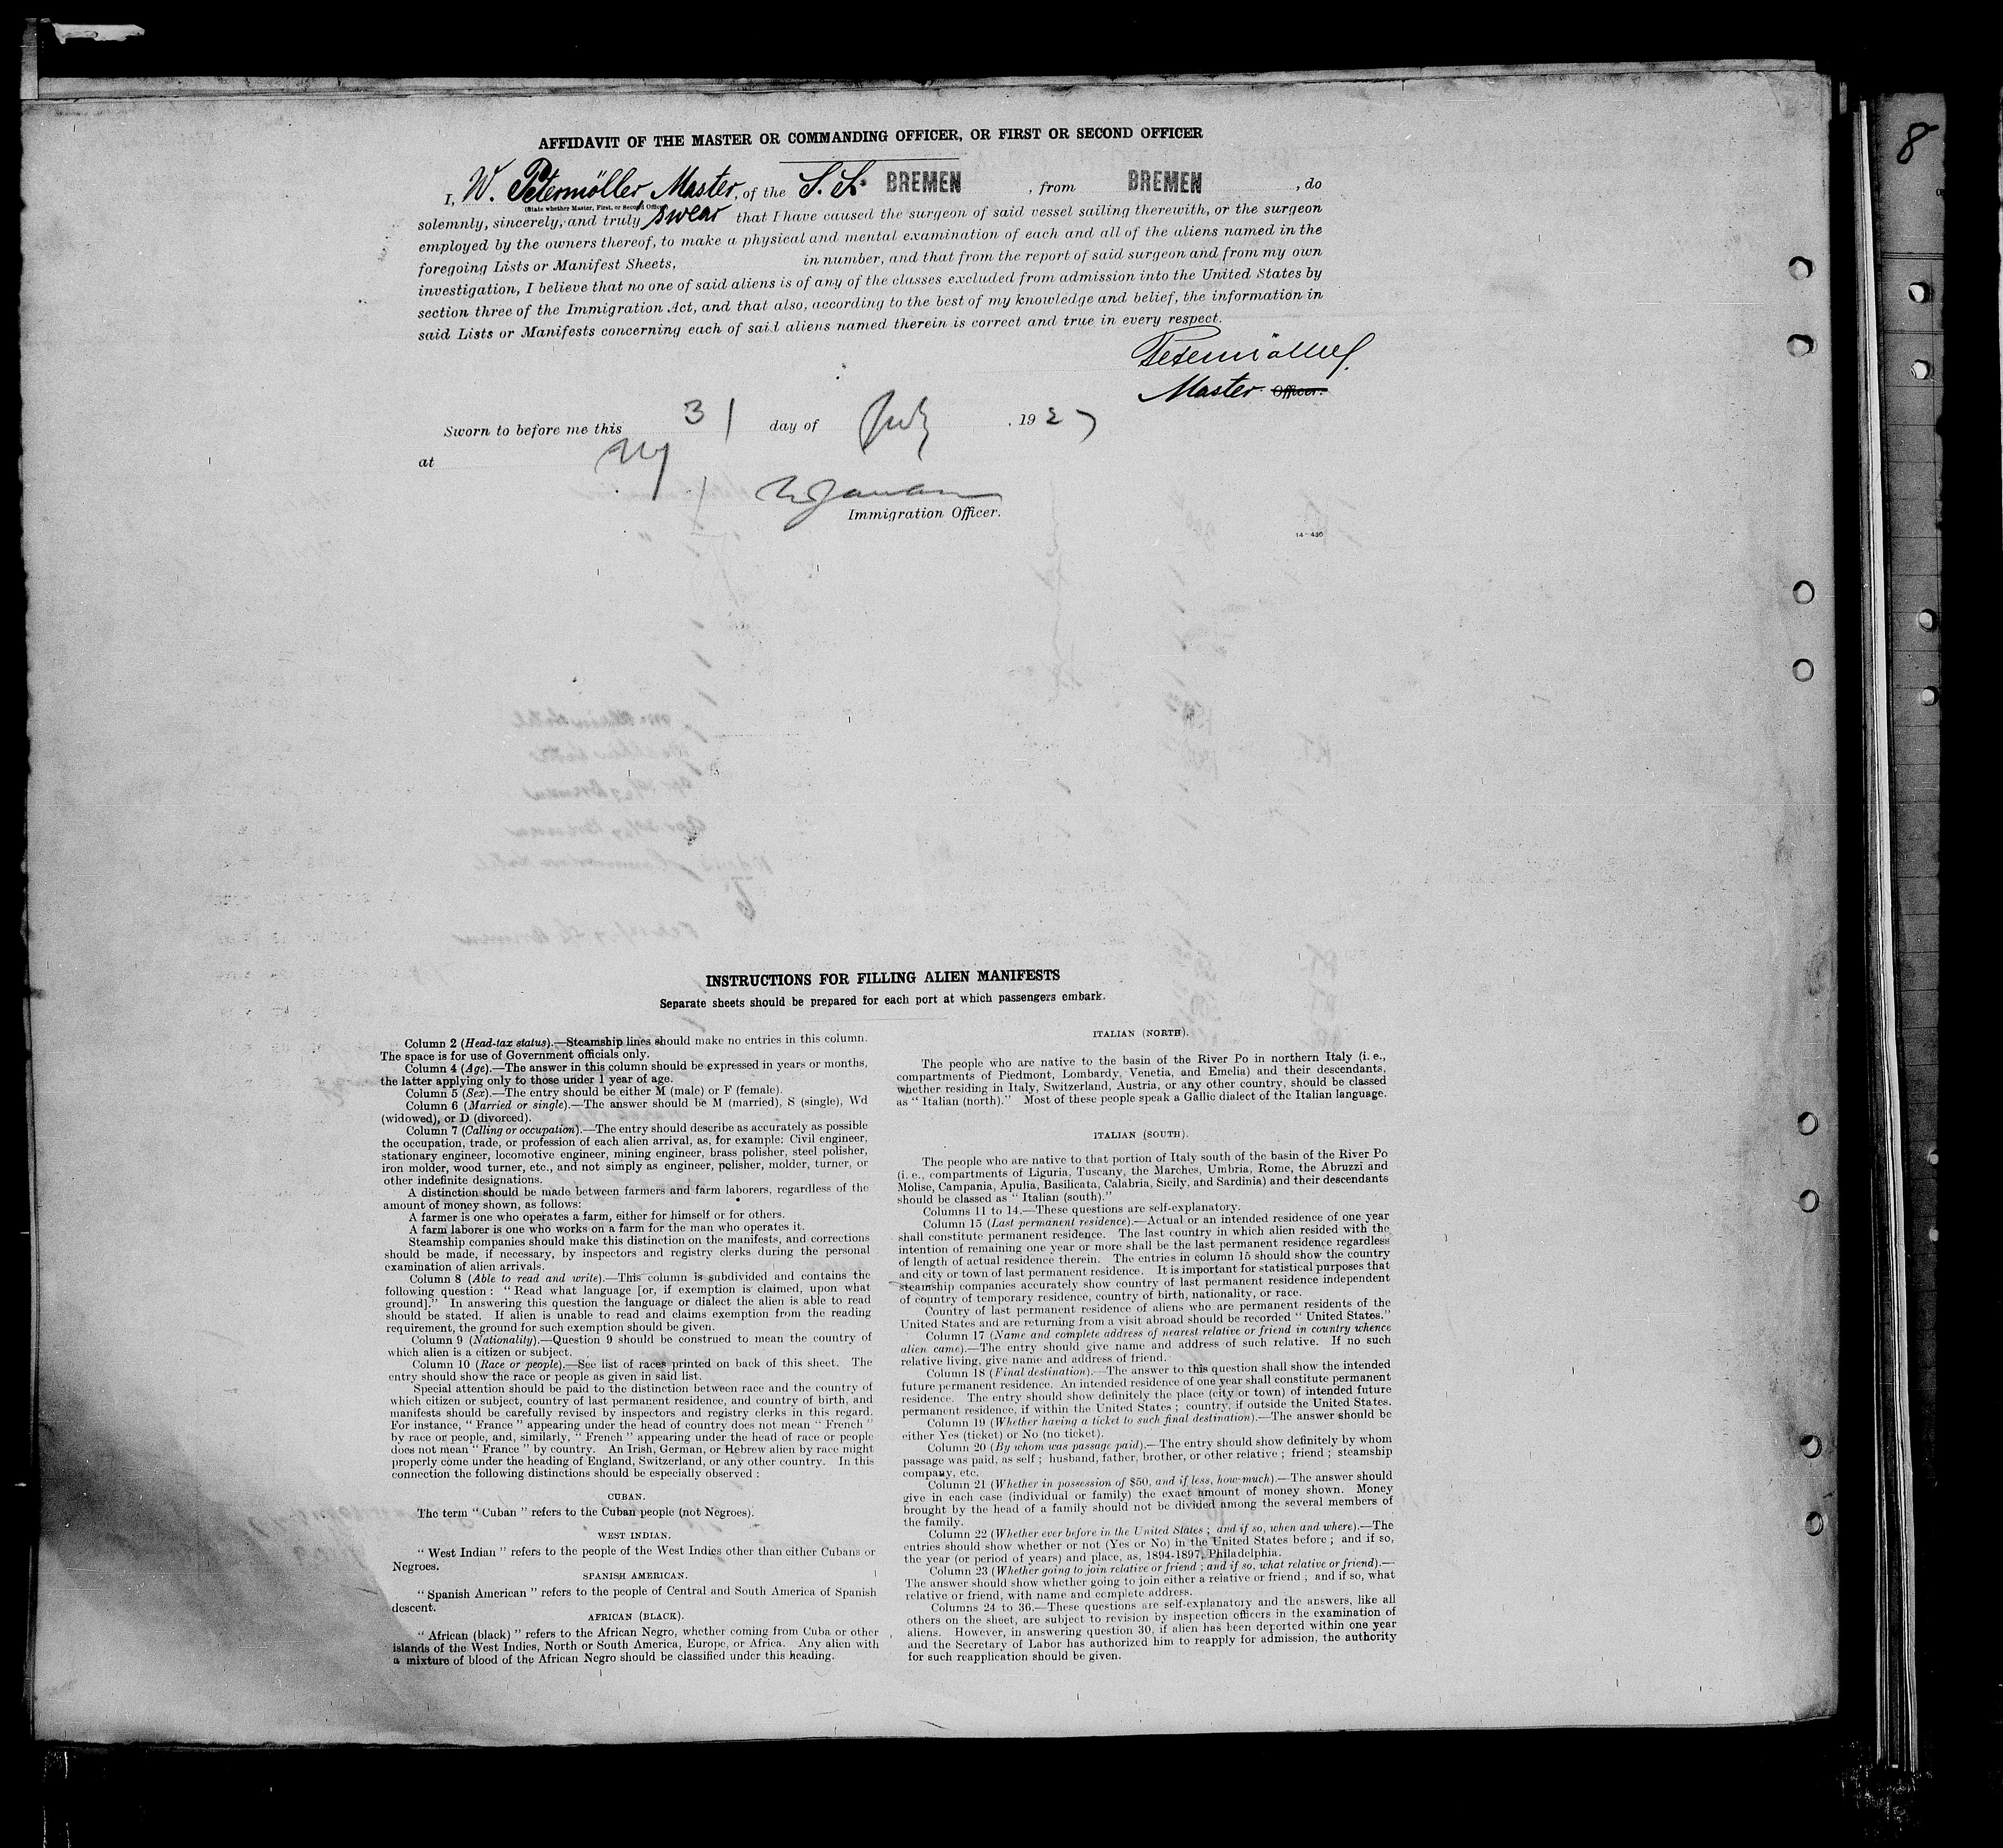 8
AFFIDAVIT OF THE MASTER OR COMMANDING OFFICER, OR FIRST OR SECOND OFFICER
I, W. Petermöller, Master, of the S. S. BREMEN , from BREMEN , do
(State whether Master, First, or Second Officer)
solemnly, sincerely, and truly, swear that I have caused the surgeon of said vessel sailing therewith, or the surgeon
employed by the owners thereof, to make a physical and mental examination of each and all of the aliens named in the
foregoing Lists or Manifest Sheets, in number, and that from the report of said surgeon and from my own
investigation, I believe that no one of said aliens is of any of the classes excluded from admission into the United States by
section three of the Immigration Act, and that also, according to the best of my knowledge and belief, the information in
said Lists or Manifests concerning each of said aliens named therein is correct and true in every respect.
Petermöller.
Master Officer.
Sworn to before me this 31 day of July , 1927
at NY
Immigration Officer.
14-430
INSTRUCTIONS FOR FILLING ALIEN MANIFESTS
Separate sheets should be prepared for each port at which passengers embark.
Column 2 (Head-tax status).—Steamship lines should make no entries in this column.
The space is for use of Government officials only.
Column 4 (Age).—The answer in this column should be expressed in years or months,
the latter applying only to those under 1 year of age.
Column 5 (Sex).—The entry should be either M (male) or F (female).
Column 6 (Married or single).—The answer should be M (married), S (single), Wd
(widowed), or D (divorced).
Column 7 (Calling or occupation).—The entry should describe as accurately as possible
the occupation, trade, or profession of each alien arrival, as, for example: Civil engineer,
stationary engineer, locomotive engineer, mining engineer, brass polisher, steel polisher,
iron molder, wood turner, etc., and not simply as engineer, polisher, molder, turner, or
other indefinite designations.
A distinction should be made between farmers and farm laborers, regardless of the
amount of money shown, as follows:
A farmer is one who operates a farm, either for himself or for others.
A farm laborer is one who works on a farm for the man who operates it.
Steamship companies should make this distinction on the manifests, and corrections
should be made, if necessary, by inspectors and registry clerks during the personal
examination of alien arrivals.
Column 8 (Able to read and write).—This column is subdivided and contains the
following question : “ Read what language [or, if exemption is claimed, upon what
ground].” In answering this question the language or dialect the alien is able to read
should be stated. If alien is unable to read and claims exemption from the reading
requirement, the ground for such exemption should be given.
Column 9 (Nationality).—Question 9 should be construed to mean the country of
which alien is a citizen or subject.
Column 10 (Race or people).—See list of races printed on back of this sheet. The
entry should show the race or people as given in said list.
Special attention should be paid to the distinction between race and the country of
which citizen or subject, country of last permanent residence, and country of birth, and
manifests should be carefully revised by inspectors and registry clerks in this regard.
For instance, “ France ” appearing under the head of country does not mean “ French ”
by race or people, and, similarly, “ French ” appearing under the head of race or people
does not mean “ France ” by country. An Irish, German, or Hebrew alien by race might
properly come under the heading of England, Switzerland, or any other country. In this
connection the following distinctions should be especially observed :
CUBAN.
The term “ Cuban ” refers to the Cuban people (not Negroes).
WEST INDIAN.
“ West Indian ” refers to the people of the West Indies other than either Cubans or
Negroes.
SPANISH AMERICAN.
“ Spanish American ” refers to the people of Central and South America of Spanish
descent.
AFRICAN (BLACK).
“ African (black) ” refers to the African Negro, whether coming from Cuba or other
islands of the West Indies, North or South America, Europe, or Africa. Any alien with
a mixture of blood of the African Negro should be classified under this heading.
ITALIAN (NORTH).
The people who are native to the basin of the River Po in northern Italy (i. e.,
compartments of Piedmont, Lombardy, Venetia, and Emelia) and their descendants,
whether residing in Italy, Switzerland, Austria, or any other country, should be classed
as “ Italian (north).” Most of these people speak a Gallic dialect of the Italian language.
ITALIAN (SOUTH).
The people who are native to that portion of Italy south of the basin of the River Po
(i. e., compartments of Liguria, Tuscany, the Marches, Umbria, Rome, the Abruzzi and
Molise, Campania, Apulia, Basilicata, Calabria, Sicily, and Sardinia) and their descendants
should be classed as “ Italian (south).”
Columns 11 to 14.—These questions are self-explanatory.
Column 15 (Last permanent residence).—Actual or an intended residence of one year
shall constitute permanent residence. The last country in which alien resided with the
intention of remaining one year or more shall be the last permanent residence regardless
of length of actual residence therein. The entries in column 15 should show the country
and city or town of last permanent residence. It is important for statistical purposes that
steamship companies accurately show country of last permanent residence independent
of country of temporary residence, country of birth, nationality, or race.
Country of last permanent residence of aliens who are permanent residents of the
United States and are returning from a visit abroad should be recorded “ United States.”
Column 17 (Name and complete address of nearest relative or friend in country whence
alien came).—The entry should give name and address of such relative. If no such
relative living, give name and address of friend.
Column 18 (Final destination).—The answer to this question shall show the intended
future permanent residence. An intended residence of one year shall constitute permanent
residence. The entry should show definitely the place (city or town) of intended future
permanent residence, if within the United States ; country, if outside the United States.
Column 19 (Whether having a ticket to such final destination).—The answer should be
either Yes (ticket) or No (no ticket).
Column 20 (By whom was passage paid).—The entry should show definitely by whom
passage was paid, as self ; husband, father, brother, or other relative ; friend ; steamship
company, etc.
Column 21 (Whether in possession of $50, and if less, how much).—The answer should
give in each case (individual or family) the exact amount of money shown. Money
brought by the head of a family should not be divided among the several members of
the family.
Column 22 (Whether ever before in the United States ; and if so, when and where).—The
entries should show whether or not (Yes or No) in the United States before ; and if so,
the year (or period of years) and place, as, 1894-1897, Philadelphia.
Column 23 (Whether going to join relative or friend ; and if so, what relative or friend).—
The answer should show whether going to join either a relative or friend ; and if so, what
relative or friend, with name and complete address.
Columns 24 to 36.—These questions are self-explanatory and the answers, like all
others on the sheet, are subject to revision by inspection officers in the examination of
aliens. However, in answering question 30, if alien has been deported within one year
and the Secretary of Labor has authorized him to reapply for admission, the authority
for such reapplication should be given.